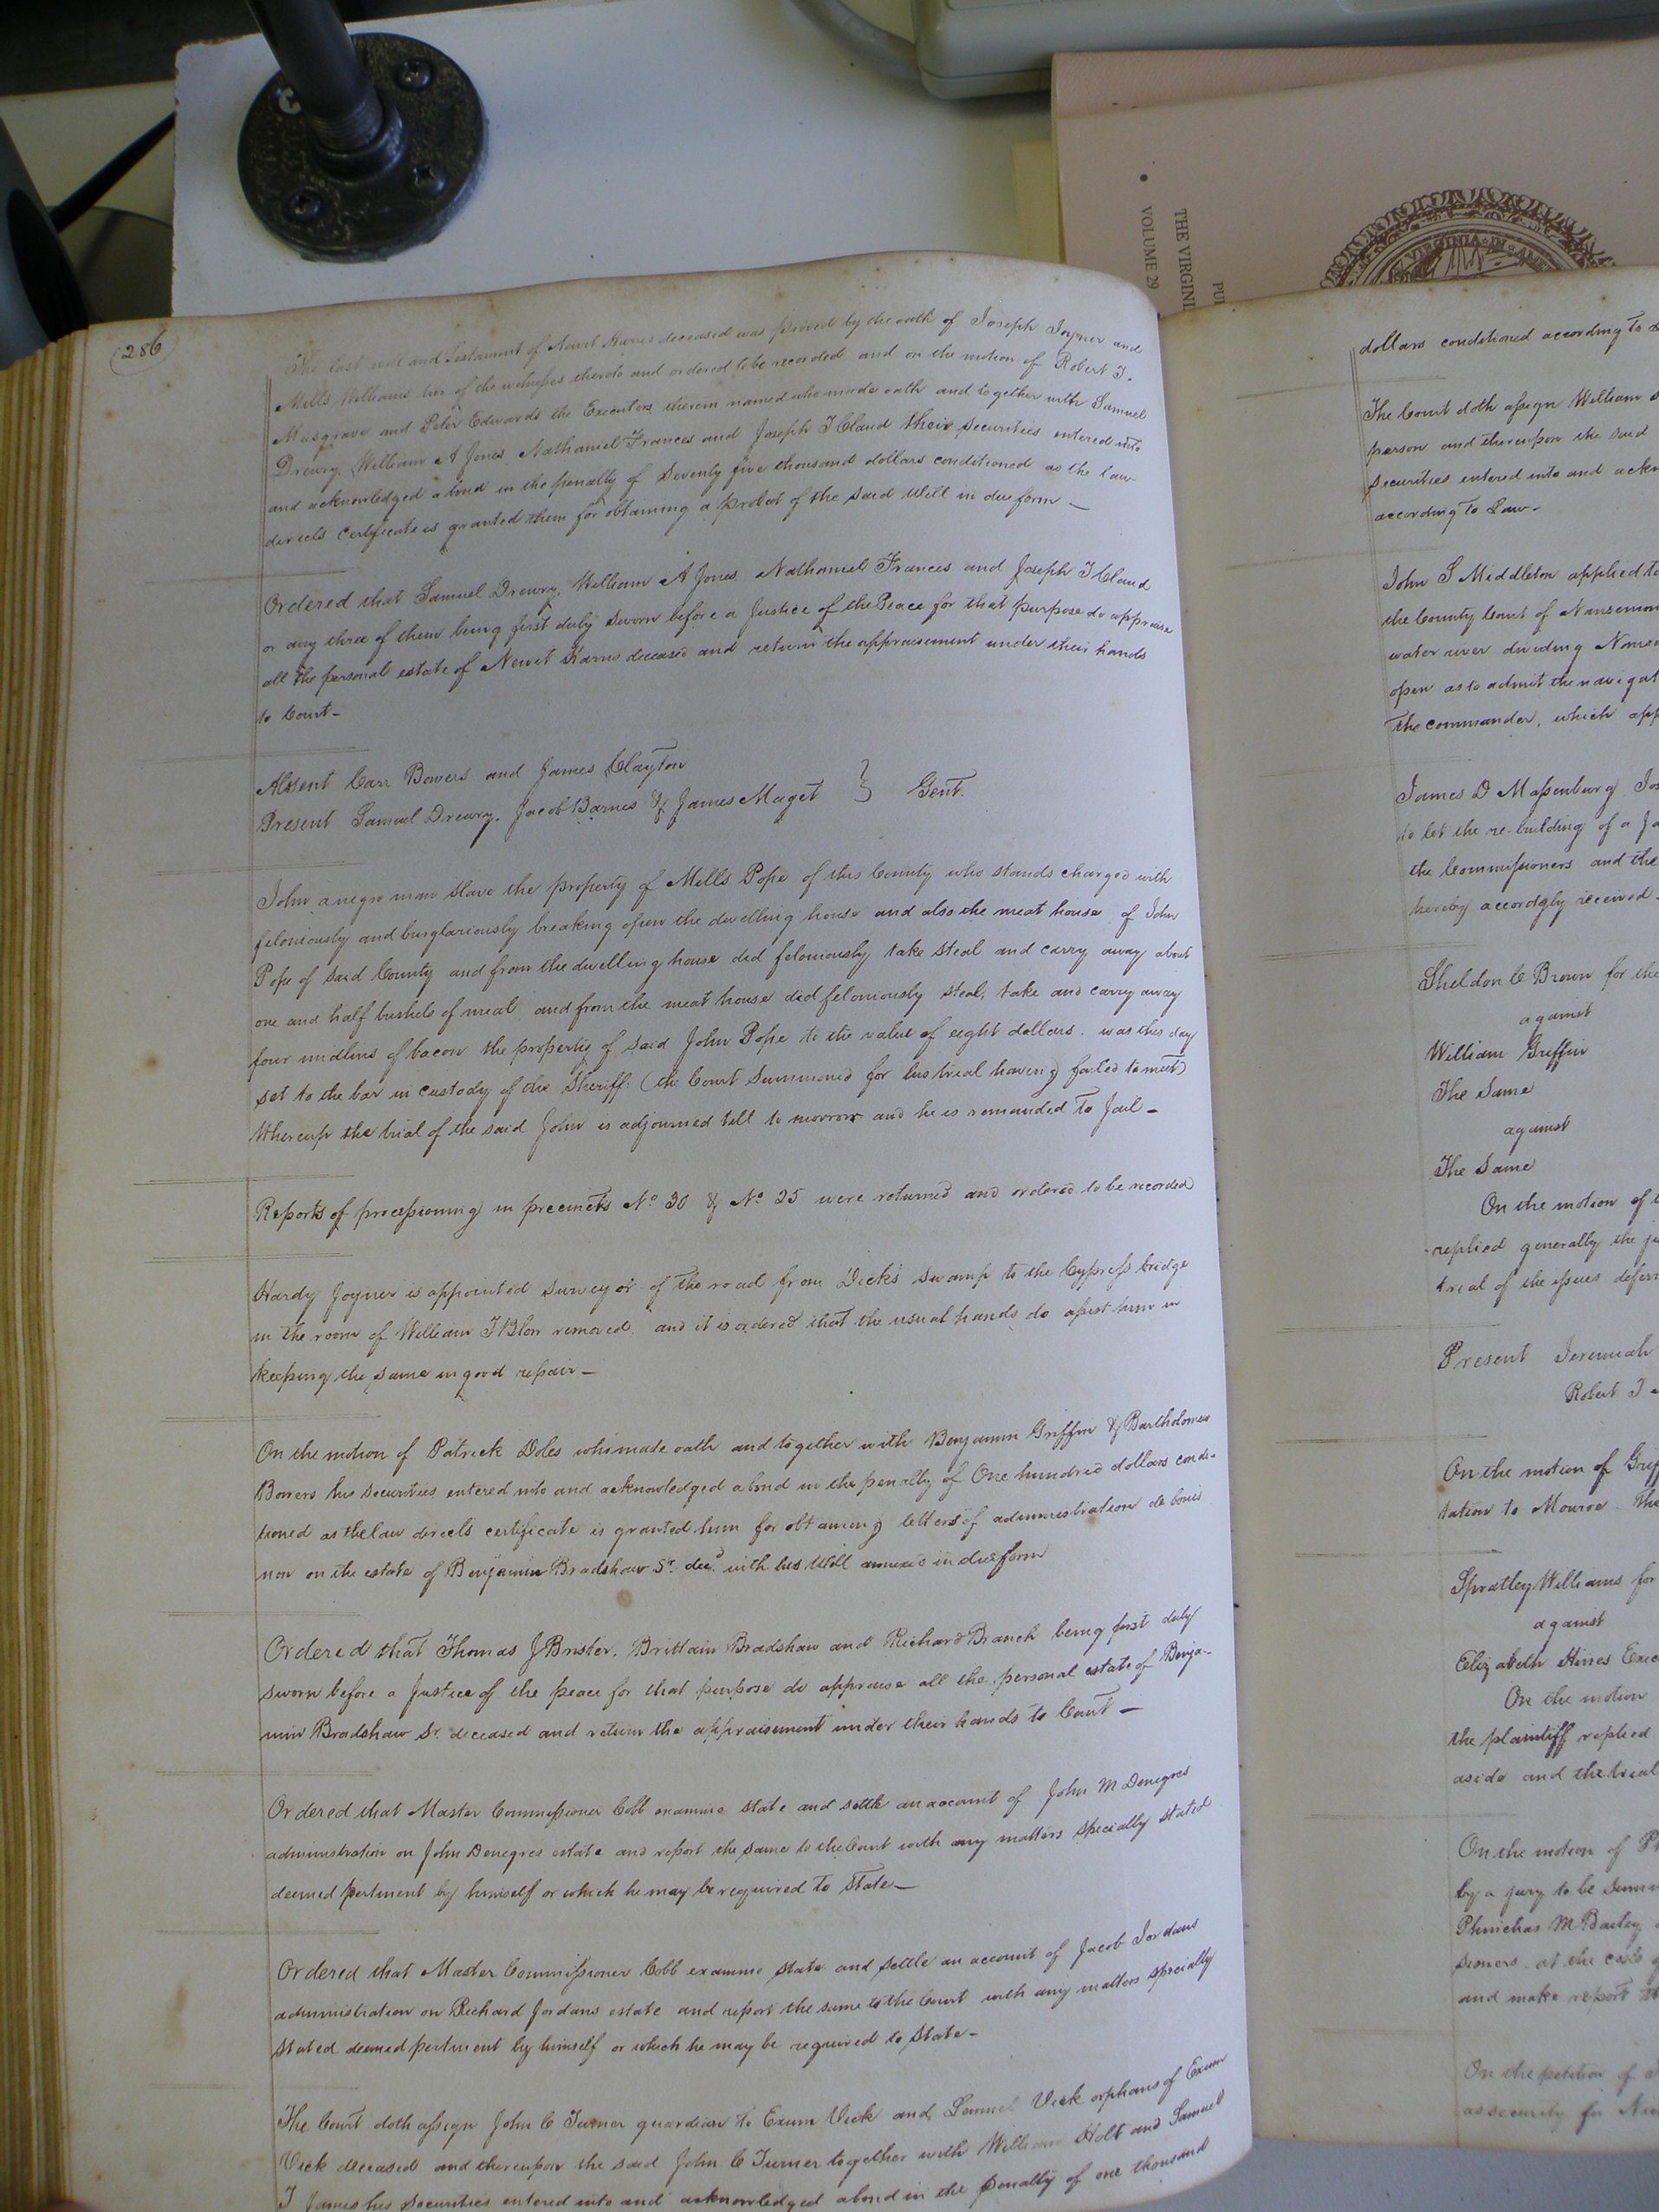 286
The last will and Testament of Newit Harris deceased was proved by the oath of Joseph Joyner and
Mills Williams two of the witnesses thereto and ordered to be recorded and on the motion of Robert T.
Musgrave and Peter Edwards the Executors therein named who made oath and together with Samuel
Drewry, William A Jones, Nathaniel Frances and Joseph T Claud their securities entered into
and acknowledged a bond in the penalty of Seventy five thousand dollars conditioned as the law
directs certificate is granted them for obtaining a probat of the said Will in due form —
Ordered that Samuel Drewry, William A Jones, Nathaniel Frances and Joseph T Claud
or any three of them being first duly sworn before a Justice of the Peace for that purpose do appraise
all the personal estate of Newit Harris deceased and return the appraisement under their hands
to Court —
Absent Carr Bowers and James Clayton
Present Samuel Drewry, Jacob Barnes & James Maget } Gent.
John a negro man slave the property of Mills Pope of this County who stands charged with
feloniously and burglariously breaking open the dwelling house and also the meat house of John
Pope of said County and from the dwelling house did feloniously take steal and carry away about
one and half bushels of meal and from the meat house did feloniously steal, take and carry away
four midlins of bacon the property of said John Pope to the value of eight dollars. was this day
set to the bar in custody of the Sheriff: (the Court summoned for his trial having failed to meet)
Whereup the trial of the said John is adjourned till to morrow and he is remanded to Jail —
Reports of processioning in precincts No. 30 & No. 25 were returned and ordered to be recorded
Hardy Joyner is appointed surveyor of the road from Dick's swamp to the Cypress bridge
in the room of William T Blow removed, and it is ordered that the usual hands do assist him in
keeping the same in good repair —
On the motion of Patrick Doles who made oath and together with Benjamin Griffin & Bartholomew
Bowers his securities entered into and acknowledged a bond in the penalty of One hundred dollars condi-
tioned as the law directs certificate is granted him for obtaining letters of administration de bonis
non on the estate of Benjamin Bradshaw Sr. decd. with his Will annexed in due form
Ordered that Thomas J Brister, Brittain Bradshaw and Richard Branch being first duly
sworn before a Justice of the peace for that purpose do appraise all the personal estate of Benja-
min Bradshaw Sr. deceased and return the appraisement under their hands to Court —
Ordered that Master Commissioner Cobb examine state and settle an account of John M Denegres
administration on John Denegres estate and report the same to the Court with any matters specially stated
deemed pertinent by himself or which he may be required to state —
Ordered that Master Commissioner Cobb examine state and settle an account of Jacob Jordans
administration on Richard Jordans estate and report the same to the Court with any matters specially
stated deemed pertinent by himself or which he may be required to state —
The Court doth assign John C Turner guardian to Exum Vick and Samuel Vick orphans of Exum
Vick deceased and thereupon the said John C Turner together with William Holt and Samuel
T James his securities entered into and acknowledged a bond in the penalty of one thousand
THE VIRGINI
VOLUME 29
PU
VIRGINIA IN
dollars conditioned according to
The Court doth assign William
person and thereupon the said
securities entered into and ackn
according to Law —
John S Middleton applied to
the County Court of Nansemon
water river dividing Nanse
open as to admit the navigat
the commander, which app
James D Massenburg Jos
to let the re-building of a Ja
the Commissioners and the
hereby accordgly received —
Sheldon C Brown for the
against
William Griffin
The Same
against
The Same
On the motion of
replied generally the ju
trial of the issues deferr
Present Jeremiah
Robert T
On the motion of Griff
tation to Monroe The
Spratley Williams for
against
Elizabeth Hines Exec
On the motion
the plaintiff replied
aside and the trial
On the motion of P
by a jury to be summ
Phinehas M Bailey
sioners at the cost
and make report
On the petition of a
as security for